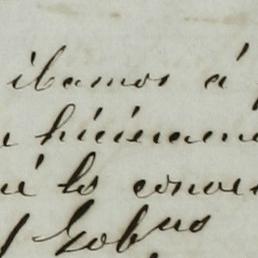 ibamos á
hiciéramo
lo conve
Gobno